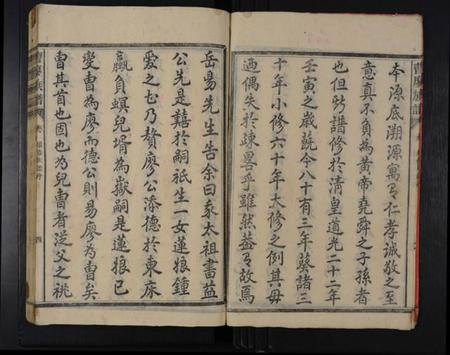 本源底溯源寓有仁孝誠敬之至
意真不負為黃帝堯舜之子孫者
也但旴譜修於清皇道光二十二年
壬寅之歲既今八十有三年葵諸三
十年小修六十年大修之例其毋
過偶失於疎畧乎雖然茲有故焉
岳易先生告余曰家太祖書益
公先是囏於嗣祇生一女蓮娘鍾
愛之乜乃贅廖公添德於東床
蠃負螟兒壻為嶽嗣是蓮娘已
變曹為廖而德公則易廖為曹矣
曹其首也固也為兒曹者從父之祧
曹廖族譜
四